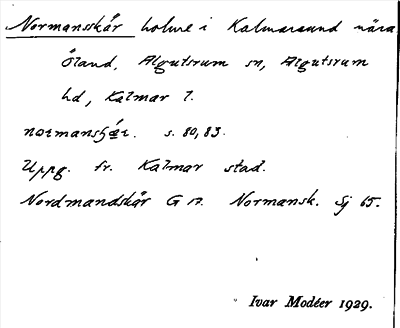 Normansskär holme i Kalmarsund nära
Öland, Algutsrum sn, Algutsrum
hd, Kalmar l.
s. 80, 83.
Uppg. fr. Kalmar stad.
Nordmandskär G 17. Normansk. Sj 65.
Ivar Modéer 1929.